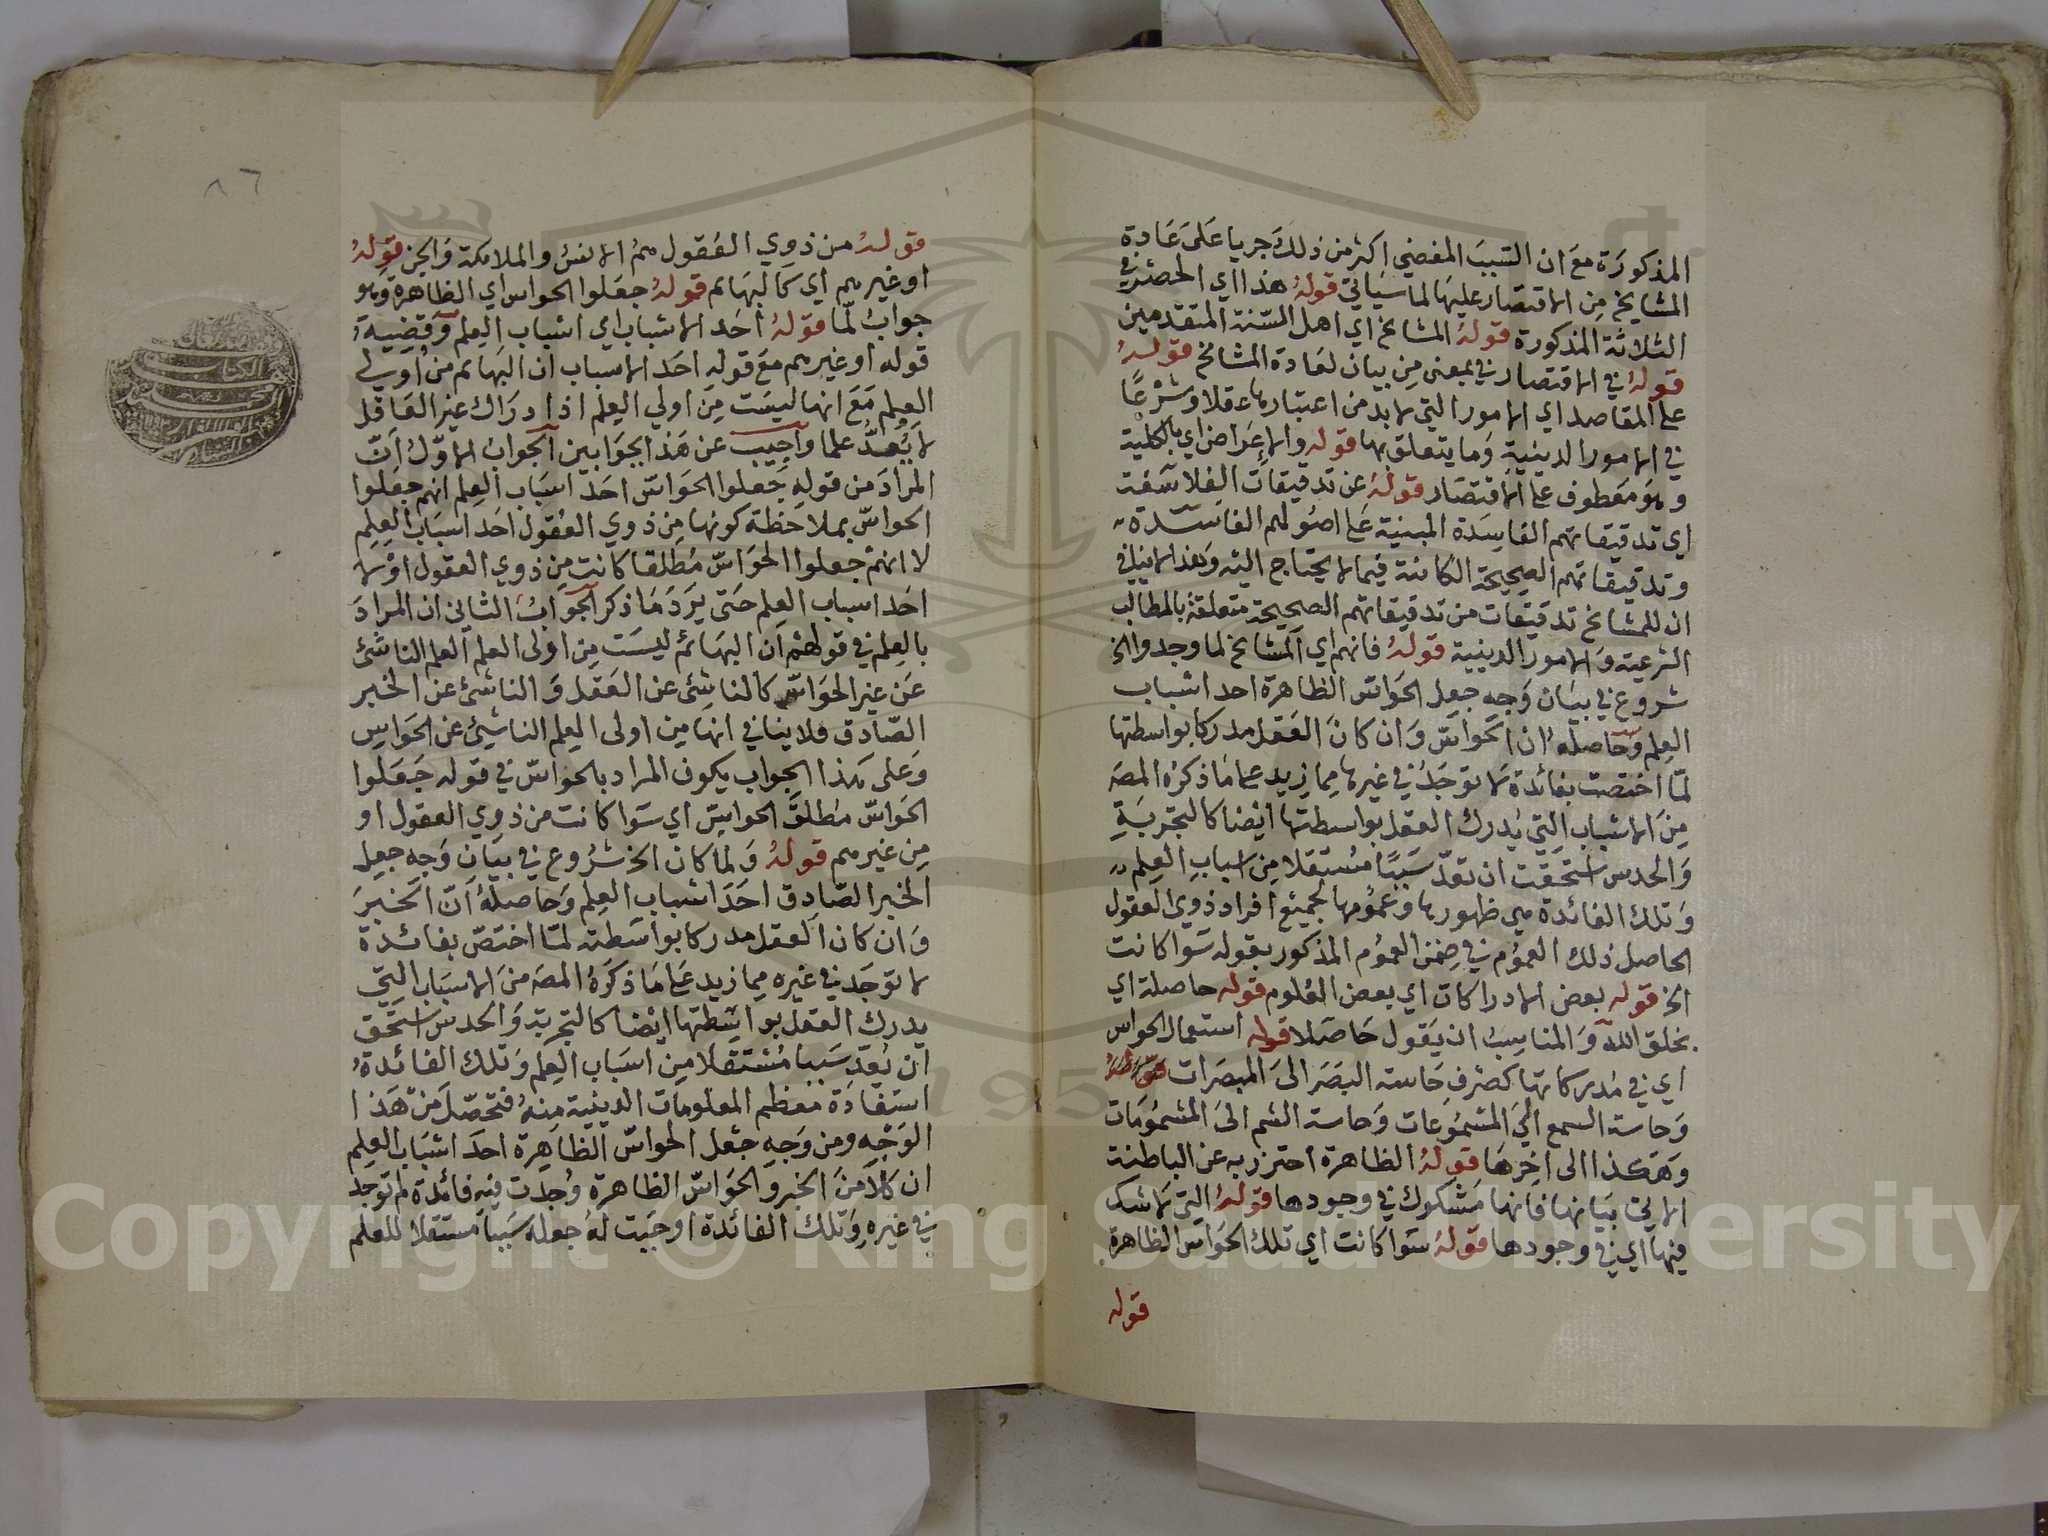 المذكورة مع ان السبب المفضي اكثر من ذلك جريا على عادة
المشايخ من الاقتصار عليها لما سياتي قوله هذا اي الحصر في
الثلاثة المذكورة قوله المشايخ اي اهل السنة المتقدمين
قوله في الاقتصار في بمعنى من بيان لعادة المشايخ قوله
على المقاصد اي الامور التي لا بد من اعتبارها عقلا وشرعا
في الامور الدينية وما يتعلق بها قوله والاعراض اي بالكلية
وهو معطوف على الاقتصار قوله عن تدقيقات الفلاسفة
اي تدقيقاتهم الفاسدة المبنية على اصولهم الفاسدة
وتدقيقاتهم الصحيحة الكائنة فيما لا يحتاج اليه وهذا لا ينافي
ان للمشايخ تدقيقات من تدقيقاتهم الصحيحة متعلقة بالمطالب
الشرعية والامور الدينية قوله فانهم اي المشايخ لما وجدوا الخ
شروع في بيان وجه جعل الحواس الظاهرة احد اسباب
العلم وحاصله ان الحواس وان كان العقل مدركا بواسطتها
لما اختصت بفائدة لا توجد في غيرها مما زيد على ما ذكره المصـ
من الاسباب التي يدرك العقل بواسطتها ايضا كالتجربة
والحدس استحقت ان تعد سببا مستقلا من اسباب العلم
وتلك الفائدة هي ظهورها وعمومها لجميع افراد ذوي العقول
الحاصل ذلك العموم في ضمن العموم المذكور بقوله سوا كانت
الخ قوله بعض الادراكات اي بعض العلوم قوله حاصلة اي
بخلق الله والمناسب ان يقول حاصلا قوله استعمال الحواس
اي في مدركاتها كصرف حاسة البصر الى المبصرات
وحاسة السمع الى المسموعات وحاسة الشم الى المشمومات
وهكذا الى اخرها قوله الظاهرة احترز به عن الباطنة
الاتي بيانها فانها مشكوك في وجودها قوله التي لا شك
فيها اي في وجودها قوله سوا كانت اي تلك الحواس الظاهرة
قوله
٨٦
قوله من ذوي العقول هم الانس والملائكة والجن قوله
او غيرهم اي كالبهائم قوله جعلوا الحواس اي الظاهرة وهو
جواب لما قوله احد الاسباب اي اسباب العلم وقضية
قوله او غيرهم مع قوله احد الاسباب ان البهائم من اولي
العلم مع انها ليست من اولي العلم اذ ادراك غير العاقل
لا يعد علما واجيب عن هذا بجوابين الجواب الاول ان
المراد من قوله جعلوا الحواس احد اسباب العلم انهم جعلوا
الحواس بملاحظة كونها من ذوي العقول احد اسباب العلم
لا انهم جعلوا الحواس مطلقا كانت من ذوي العقول او لا
احد اسباب العلم حتى يرد ما ذكر الجواب الثاني ان المراد
بالعلم في قولهم ان البهائم ليست من اولى العلم العلم الناشئ
عن غير الحواس كالناشئ عن العقل والناشئ عن الخبر
الصادق فلا ينافي انها من اولى العلم الناشئ عن الحواس
وعلى هذا الجواب يكون المراد بالحواس في قوله جعلوا
الحواس مطلق الحواس اي سوا كانت من ذوي العقول او
من غيرهم قوله ولما كان الخ شروع في بيان وجه جعل
الخبر الصادق احد اسباب العلم وحاصله ان الخبر
وان كان العقل مدركا بواسطته لما اختص بفائدة
لا توجد في غيره مما زيد على ما ذكره المصـ من الاسباب التي
يدرك العقل بواسطتها ايضا كالتجربة والحدس استحق
ان يعد سببا مستقلا من اسباب العلم وتلك الفائدة
استفادة معظم المعلومات الدينية منه فتحصل من هذا
الوجه ومن وجه جعل الحواس الظاهرة احد اسباب العلم
ان كلا من الخبر والحواس الظاهرة وجدت فيه فائدة لم توجد
في غيره وتلك الفائدة اوجبت له جعله سببا مستقلا للعلم
Copyright © King Saud University
195